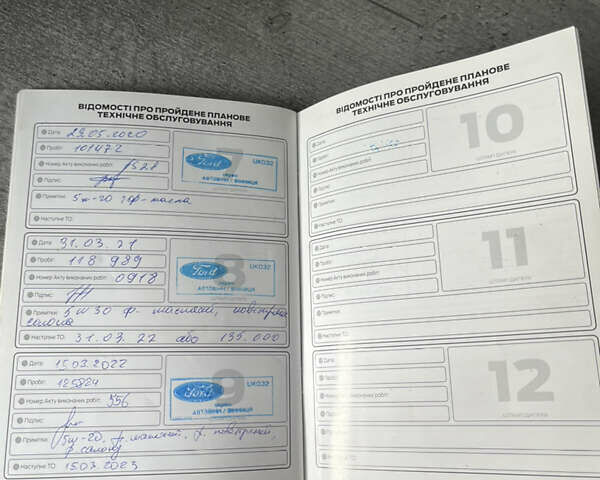 ВІДОМОСТІ ПРО ПРОЙДЕНЕ ПЛАНОВЕ
ТЕХНІЧНЕ ОБСЛУГОВУВАННЯ
Дата: 29.05.2020
Пробіг: 101472
Номер Акту виконаних робіт: 1527
Підпис:
Примітки: 5w-20
Наступне ТО:
7
Ford
UK032
сервіс
АВТОВІНН / ВІННИЦЯ
Дата: 31.03.21
Пробіг: 118 989
Номер Акту виконаних робіт: 0918
Підпис:
Примітки: 5w30 ф-масляний, повітряний
салона
Наступне ТО: 31.03.22 або 135.000
8
Ford
UK032
сервіс
АВТОВІНН / ВІННИЦЯ
Дата: 15.03.2022
Пробіг: 125824
Номер Акту виконаних робіт: 556
Підпис:
Примітки: 5w-20, ф. масляний, ф. повітряний,
ф салону
Наступне ТО: 15.03.2023
9
Ford
UK032
сервіс
АВТОВІНН / ВІННИЦЯ
ВІДОМОСТІ ПРО ПРОЙДЕНЕ ПЛАНОВЕ
ТЕХНІЧНЕ ОБСЛУГОВУВАННЯ
Дата:
Пробіг:
Номер Акту виконаних робіт:
Підпис:
Примітки:
Наступне ТО:
10
ШТАМП ДИЛЕРА
Дата:
Пробіг:
Номер Акту виконаних робіт:
Підпис:
Примітки:
Наступне ТО:
11
ШТАМП ДИЛЕРА
Дата:
Пробіг:
Номер Акту виконаних робіт:
Підпис:
Примітки:
Наступне ТО:
12
ШТАМП ДИЛЕРА